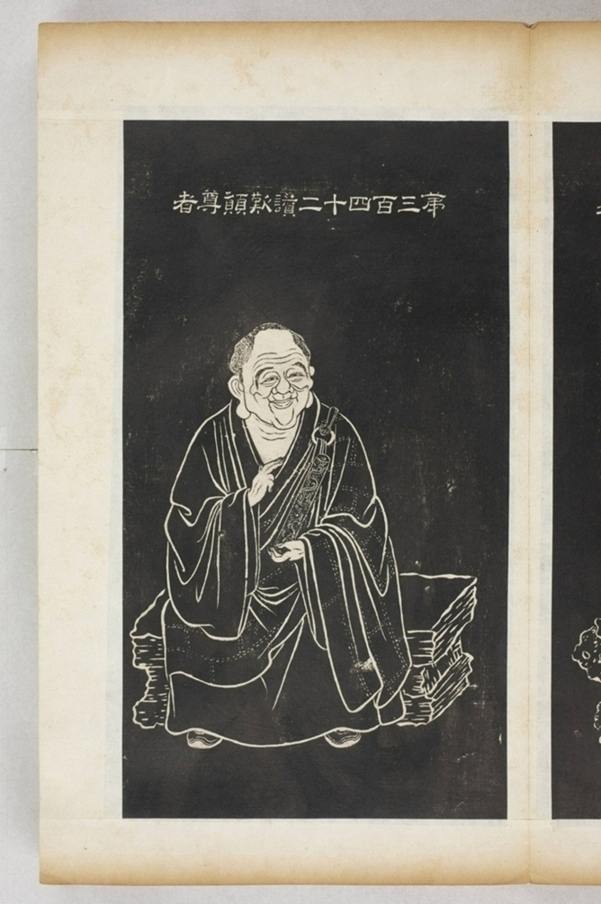 第三百四十二讚歎願尊者